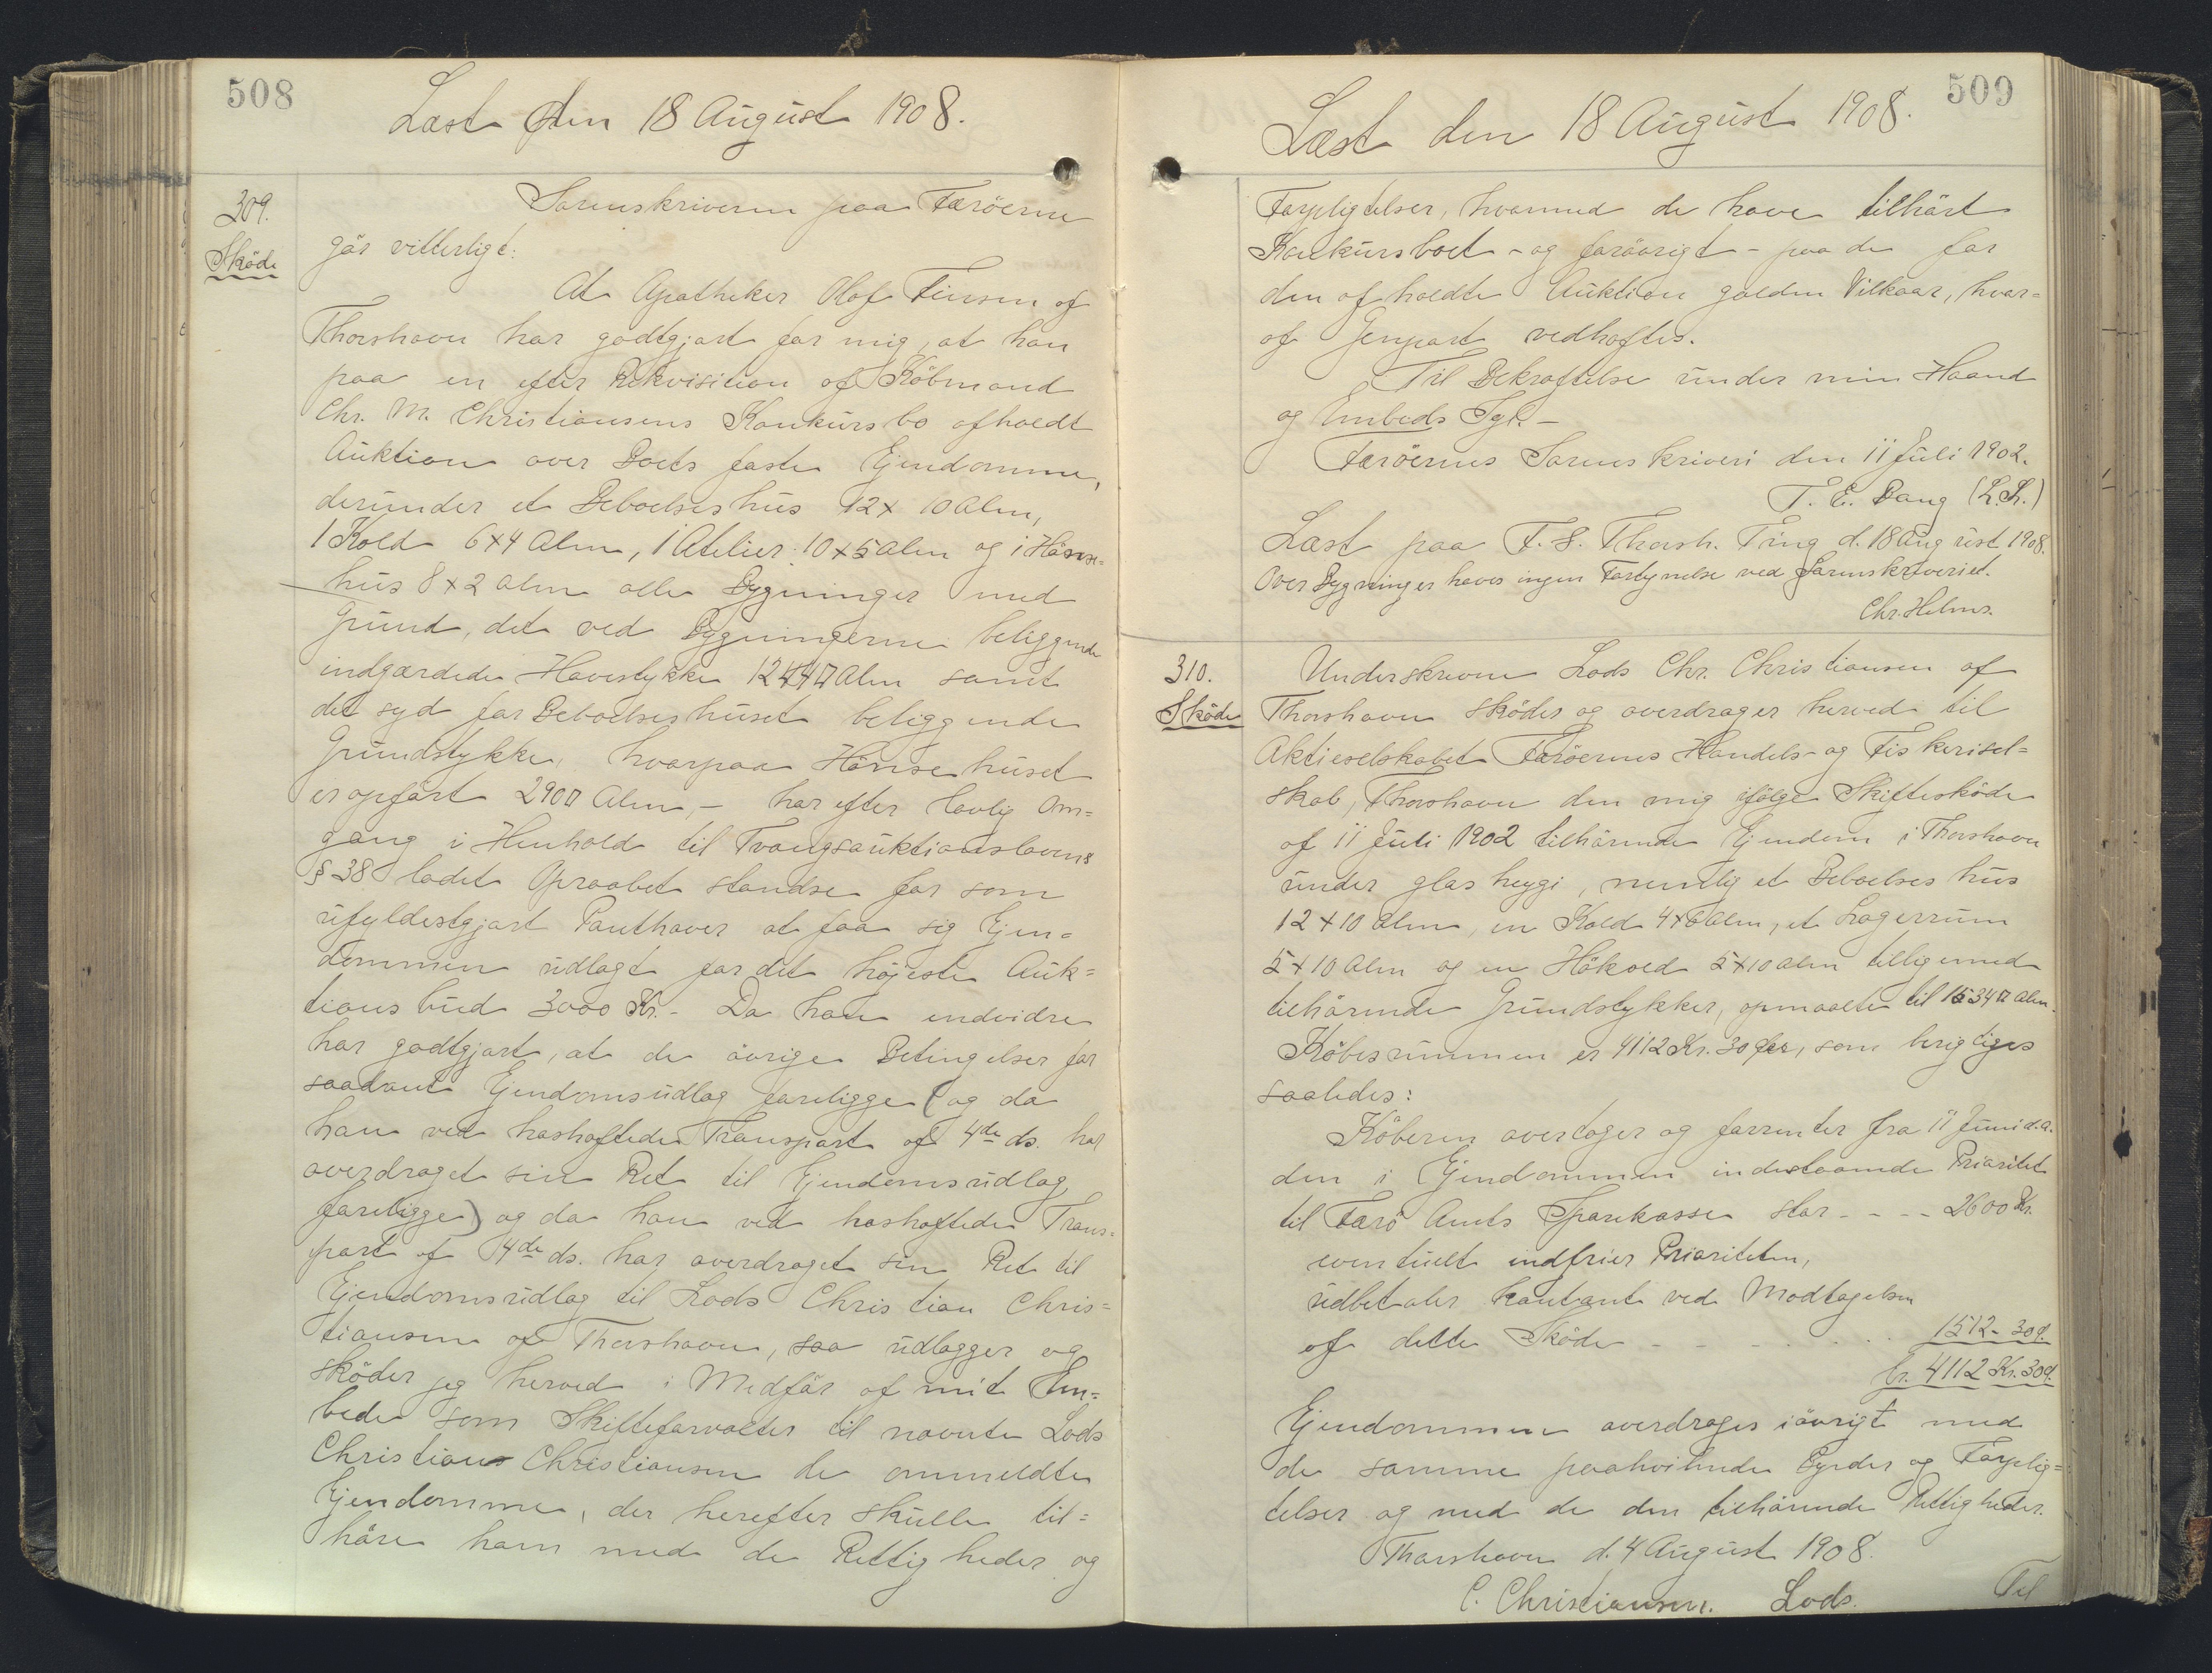 508
Læst den 18 August 1908.
309.
Sköde
Sorenskriveren paa Færöerne
gör vitterligt:
At Apotheker Olaf Finsen af
Thorshavn har godtgjort for mig, at han
paa en efter Rekvisition af Köbmand
Chr. M. Christiansens Konkursbo afholdt
Auktion over Boets faste Ejendomme,
derunder et Beboelseshus 12 x 10 Alen,
1 Kold 6x4 Alen, 1 Atelier 10 x 5 Alen og 1 Hönse=
hus 8 x 2 Alen alle Bygninger med
Grund, det ved Bygningerne beliggende
indgærdede Havestykke 1244 □ Alen samt
det syd for Beboelseshuset beliggende
Grundstykke, hvorpaa Hönsehuset
er opfört 290 □ Alen, - har efter lovlig Om=
gang i Henhold til Tvangsauktionslovens
§ 38 ladet Opraabet standse for som
ufyldestgjort Panthaver at faa sig Ejen=
dommen udlagt for det højeste Auk=
tionsbud 3000 Kr. - Da han endvidre
har godtgjort, at de övrige Betingelser for
saadant Ejendomsudlag foreligge (og da
han ved hoshæftede Transport af 4de ds. har
overdraget sin Ret til Ejendomsudlag
foreligge) og da han ved hoshæftede Trans=
port af 4de ds. har overdraget sin Ret til
Ejendomsudlag til Lods Christian Chris=
tiansen af Thorshavn, saa udlægger og
sköder jeg herved i Medför af mit Em=
bede som Skifteforvalter til nævnte Lods
Christian Christiansen de ommeldte
Ejendomme, der herefter skulle til=
höre ham med de Rettigheder og
509
Læst den 18 August 1908.
Forpligtelser, hvormed de have tilhört
Konkursboet - og foröovrigt - paa de for
den afholdte Auktion gælden Vilkaar, hvor=
af Genpart vedhæftes.
Til Bekræftelse under min Haand
og Embeds Segl. -
Færöernes Sorenskriveri den 11 Juli 1902.
T. E. Bang (L.S.)
Læst paa F. S. Thorsh. Ting d. 18 August 1908.
Over Bygninger haves ingen Fortegnelse ved Sorenskriveriet.
Chr. Helms.
310.
Sköde
Underskrevne Lods Chr. Christiansen af
Thorshavn sköder og overdrager herved til
Aktieselskabet Færöernes Handels- og Fiskerisel=
skab, Thorshavn den mig ifölge Skifteskøde
af 11 Juli 1902 tilhörende Ejendom i Thorshavn
under glas heygi, nemlig et Beboelseshus
12 x 10 Alen, en Kold 4x6 Alen, et Lagerrum
5 x 10 Alen og en Hökold 5 x 10 Alen tilligemed
tilhörende Grundstykker, opmaalte til 1534 □ Alen.
Köbesummen er 4112 Kr. 30 Øre, som berigtiges
saaledes:
Köberen overtager og forrenter fra 11 Juni d.a.
den i Ejendommen indestaaende Prioritet
til Færö Amts Sparekasse stor - - - - 2600 Kr.
eventuelt indfrier Prioriteten,
udbetaler kontant ved Modtagelsen
af dette Sköde - - - . . . . 1512 - 30 Ø.
Er. 4112 Kr. 30 Ø.
Ejendommen overdrages iövrigt med
de samme paahvilende Byrder og Forplig=
telser og med de den tilhörende Rettigheder.
Thorshavn d. 4 August 1908.
C. Christiansen. Lods.
Til